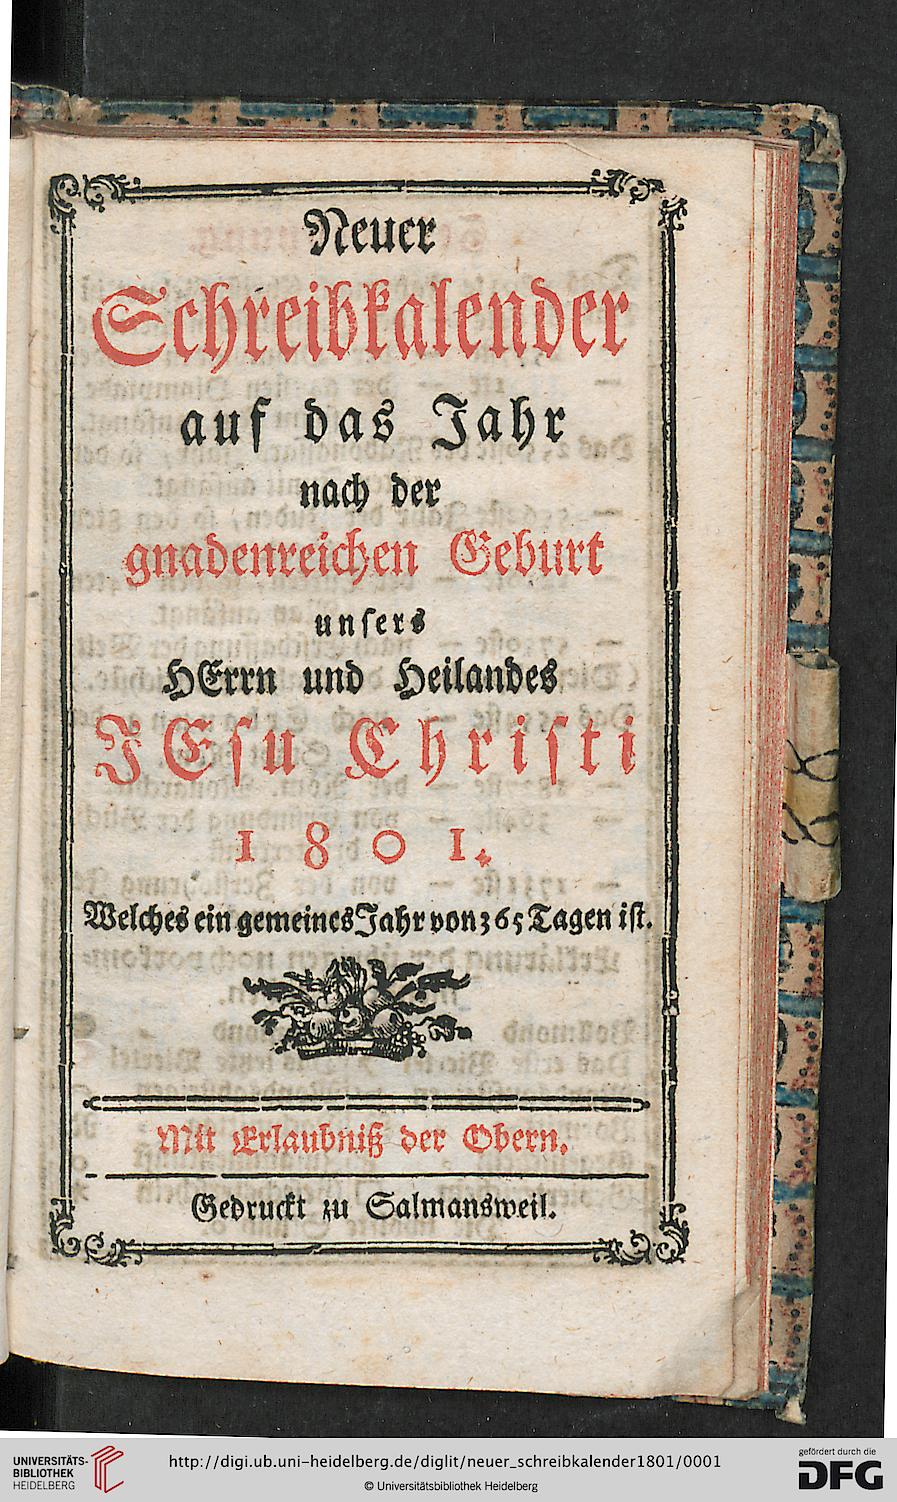 Neuer
Schreibkalender
auf das Jahr
nach der
gnadenreichen Geburt
unsers
HErrn und Heilandes
JEsu Christi
1801.
Welches ein gemeines Jahr von 365 Tagen ist.
Mit Erlaubniß der Obern.
Gedruckt zu Salmansweil.
UNIVERSITÄTS-
BIBLIOTHEK
HEIDELBERG
http://digi.ub.uni-heidelberg.de/diglit/neuer_schreibkalender1801/0001
© Universitätsbibliothek Heidelberg
gefördert durch die
DFG